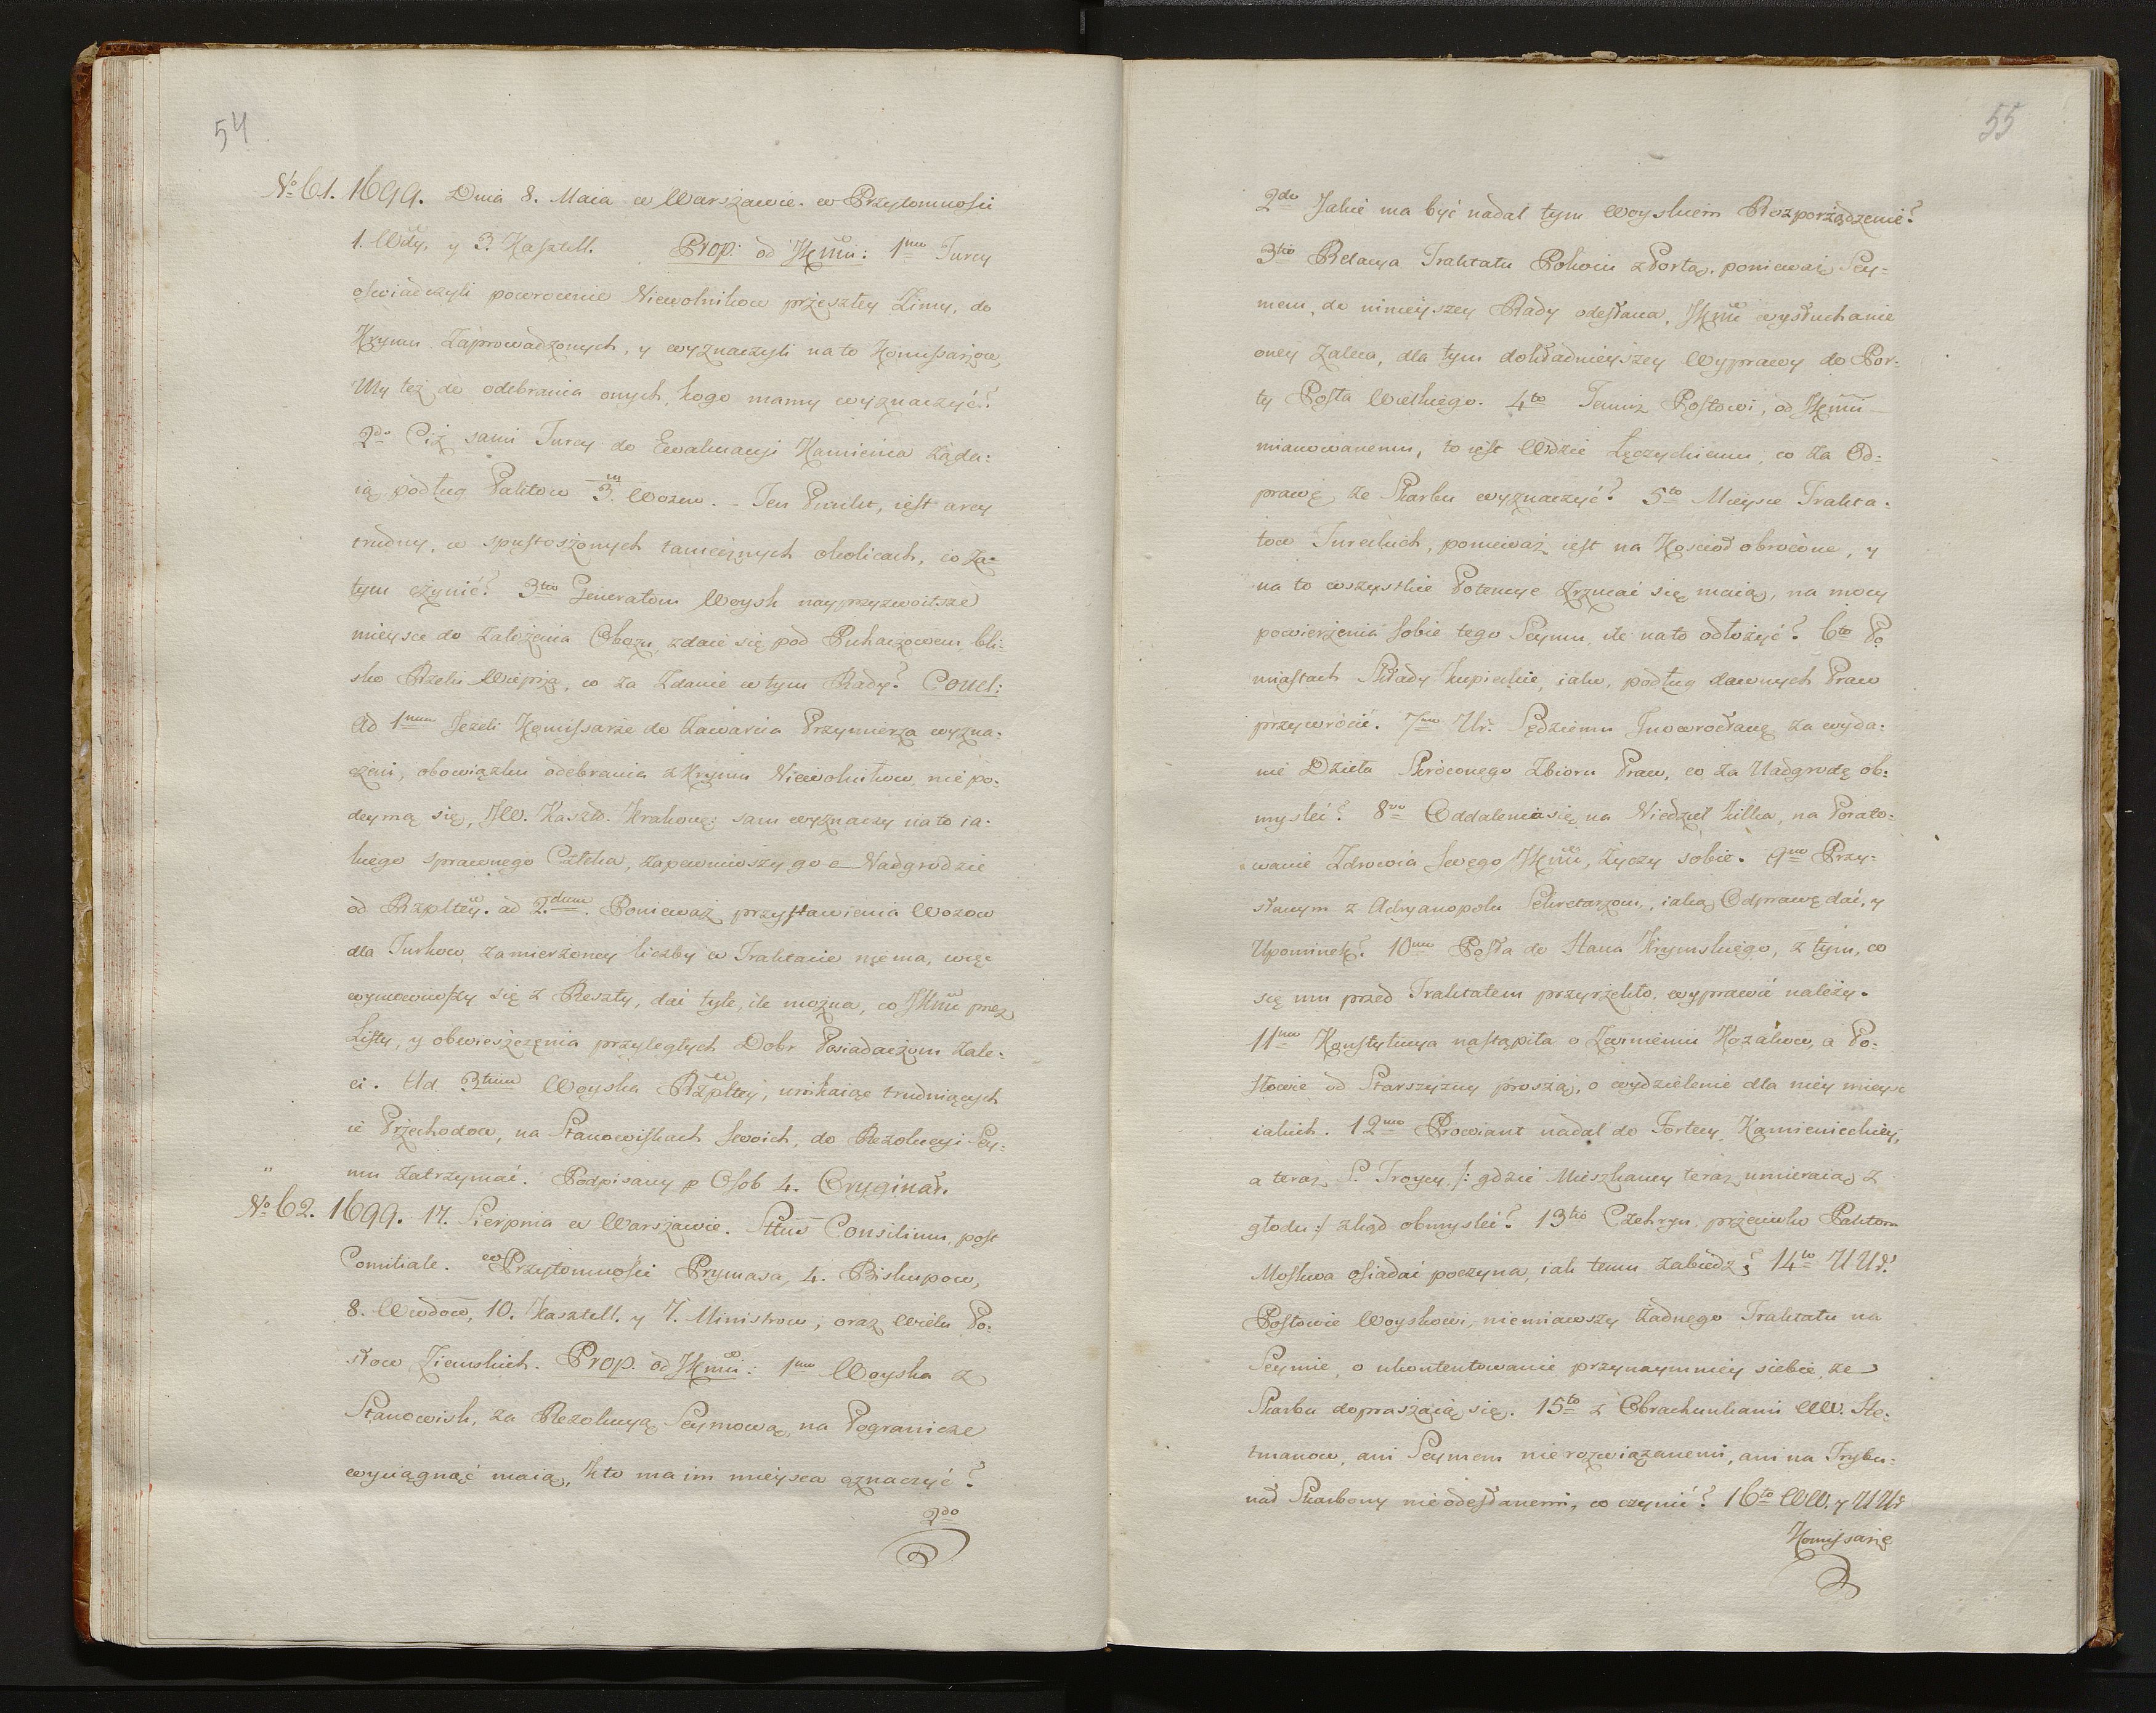 54
No 61. 1699. Dnia 8. Maia w Warszawie. w Przytomnosci
1. Wdy, y 3. Kasztell. Prop: od JKmci: 1mo Turcy
oswiadczyli powrocenie Niewolnikow przeszłey Zimy, do
Krymu Zaprowadzonych, y wyznaczyli na to Komissarzow,
My też do odebrania onych, kogo mamy wyznaczyć?
2do Ciż sami Turcy do Ewakuacyi Kamienca żąda:
ią podług Paktow 3m. Wozow. - Ten Punkt, iest arcy
trudny, w spustoszonych tamecznych okolicach, co za:
tym czynić? 3tio Generałom Woysk nayprzyzwoitsze
mieysce do Założenia Obozu, zdaie się pod Puhaczowem, bli:
sko Rzeki Wieprza, co za Zdanie w tym Rady? Concl:
Ad 1mum Jeżeli Komissarze do Zawarcia Przymierza wyzna:
czeni, obowiązku odebrania z Krymu Niewolnikow, nie po:
deymą się, JW. Kaszt. Krakows: sam wyznaczy na to ia:
kiego sprawnego Człeka, zapewniwszy go o Nadgrodzie
od Rzpltey. ad 2.dum. Ponieważ przystawienia Wozow
dla Turkow, zamierzoney liczby w Traktacie niema, więc
wymowiwszy się z Reszty, dać tyle, ile można, co JKmć przez
Listy, y obwieszczenia przyległych Dobr Posiadaczom zale:
ci. Ad 3tium Woyska Rzpltey, unikaiąc trudniących
ie Przechodow, na Stanowiskach swoich, do Rezolucyi Sey:
mu Zatrzymać. Podpisany p Osob 4. Oryginał.
No 62. 1699. 17. Sierpnia w Warszawie. Sttus Consilium, post
Comitiale. w Przytomności Prymasa, 4. Biskupow,
8. Wwdow, 10. Kasztell. y 7. Ministrow, oraz Wielu Po:
słow Ziemskich. Prop. od JKmci: 1mo Woyska z
Stanowisk, za Rezolucyą Seymową, na Pogranicze
wyciągnąć maią, Kto ma im mieysca oznaczyć?
2do
55
2do Jakie ma być nadal tym woyskiem Rozporządzenie?
3tio Relacya Traktatu Pokoiu z Portą, ponieważ Sey:
mem, do ninieyszey Rady odesłana, JKmć wysłuchanie
oney Zaleca, dla tym dokładnieyszey Wyprawy do Por:
ty Posła Wielkiego. 4to Temuż Posłowi, od JKmci
mianowanemu, to iest Wdzie Łęczyckiemu, co za Od:
prawę, ze Skarbu wyznaczyć? 5to Mieysce Trakta:
tow Tureckich, ponieważ iest na Kosciół obrocone, y
na to wszystkie Potencye Zrzucać się maią, na mocy
powierzenia sobie tego Seymu, ile na to odłożyć? 6to Po
miastach Składy Kupieckie, iako, podług dawnych Praw
przywrócić. 7mo Ur. Sędziemu Inowrocławs za wyda:
nie Dzieła Skróconego Zbioru Praw, co za Nadgrodę ob:
myslić? 8vo Oddalenia się na Niedziel kilka, na Porato:
wanie Zdrowia Swego, JKmć, życzy sobie. 9no Przy:
słanym z Adryanopolu Sekretarzom, iaką Odprawę dać, y
Upominek? 10mo Posła do Hana Krymskiego, z tym, co
się mu przed Traktatem przyrzekło, wyprawić należy.
11mo Konstytucya nastąpiła o Zwinieniu Kozakow, a Po:
słowie od Starszyzny proszą, o wydzielenie dla niey mieysc
iakich. 12mo Prowiant nadal do Fortecy Kamienieckiey,
a teraz S. Troycy /: gdzie Mieszkancy teraz umieraią z
głodu :/ zkąd obmyslić? 13tio Czehryn, przeciwko Paktom
Moskwa osiadać poczyna, iak temu zabiedz? 14to UUr.
Posłowie Woyskowi, niemiawszy żadnego Traktatu na
Seymie, o ukontentowanie przynaymniey siebie, ze
Skarbu dopraszaią się. 15to z Obrachunkami WW. He:
tmanow, ani Seymem nie rozwiązanemi, ani na Trybu:
nał Skarbowy nie odesłanemi, co czynić? 16to WW. y UUr
Komissarze